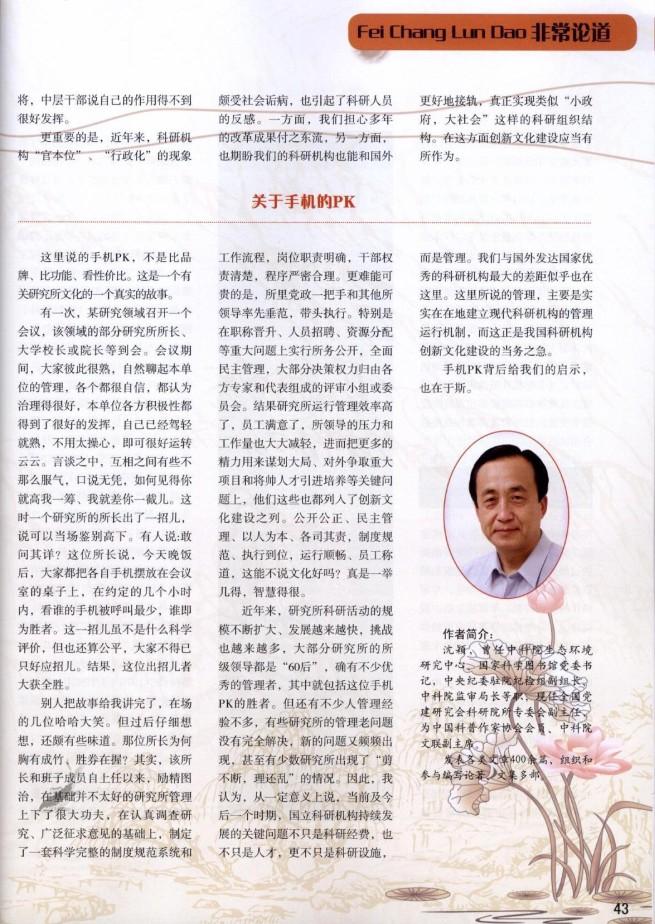 Fei Chang Lun Dao 非常论道
将，中层干部说自己的作用得不到
很好发挥。
更重要的是，近年来，科研机
构“官本位”、“行政化”的现象
颇受社会诟病，也引起了科研人员
的反感。一方面，我们担心多年
的改革成果付之东流，另一方面，
也期盼我们的科研机构也能和国外
更好地接轨，真正实现类似“小政
府，大社会”这样的科研组织结
构。在这方面创新文化建设应当有
所作为。
关于手机的PK
这里说的手机PK，不是比品
牌、比功能、看性价比。这是一个有
关研究所文化的一个真实的故事。
有一次，某研究领域召开一个
会议，该领域的部分研究所所长、
大学校长或院长等到会。会议期
间，大家彼此很熟，自然聊起本单
位的管理，各个都很自信，都认为
治理得很好，本单位各方积极性都
得到了很好的发挥，自己已经驾轻
就熟，不用太操心，即可很好运转
云云。言谈之中，互相之间有些不
那么服气，口说无凭，如何见得你
就高我一筹、我就差你一截儿。这
时一个研究所的所长出了一招儿，
说可以当场鉴别高下。有人说:敢
问其详？这位所长说，今天晚饭
后，大家都把各自手机摆放在会议
室的桌子上，在约定的几个小时
内，看谁的手机被呼叫最少，谁即
为胜者。这一招儿虽不是什么科学
评价，但也还算公平，大家不得已
只好应招儿。结果，这位出招儿者
大获全胜。
别人把故事给我讲完了，在场
的几位哈哈大笑。但过后仔细想
想，还颇有些味道。那位所长为何
胸有成竹、胜券在握？其实，该所
长和班子成员自上任以来，励精图
治，在基础并不太好的研究所管理
上下了很大功夫，在认真调查研
究、广泛征求意见的基础上，制定
了一套科学完整的制度规范系统和
工作流程，岗位职责明确，干部权
责清楚，程序严密合理。更难能可
贵的是，所里党政一把手和其他所
领导率先垂范，带头执行。特别是
在职称晋升、人员招聘、资源分配
等重大问题上实行所务公开，全面
民主管理，大部分决策权力归由各
方专家和代表组成的评审小组或委
员会。结果研究所运行管理效率高
了，员工满意了，所领导的压力和
工作量也大大减轻，进而把更多的
精力用来谋划大局、对外争取重大
项目和将帅人才引进培养等关键问
题上，他们这些也都列入了创新文
化建设之列。公开公正、民主管
理、以人为本、各司其责，制度规
范、执行到位，运行顺畅、员工称
道，这能不说文化好吗？真是一举
几得，智慧得很。
近年来，研究所科研活动的规
模不断扩大、发展越来越快，挑战
也越来越多，大部分研究所的所
级领导都是“60后”，确有不少优
秀的管理者，其中就包括这位手机
PK的胜者。但还有不少人管理经
验不多，有些研究所的管理老问题
没有完全解决，新的问题又频频出
现，甚至有少数研究所出现了“剪
不断，理还乱”的情况。因此，我
认为，从一定意义上说，当前及今
后一个时期，国立科研机构持续发
展的关键问题不只是科研经费，也
不只是人才，更不只是科研设施，
而是管理。我们与国外发达国家优
秀的科研机构最大的差距似乎也在
这里。这里所说的管理，主要是实
实在在地建立现代科研机构的管理
运行机制，而这正是我国科研机构
创新文化建设的当务之急。
手机PK背后给我们的启示，
也在于斯。
作者简介：
沈颖，曾任中科院生态环境
研究中心、国家科学图书馆党委书
记，中央纪委驻院纪检组副组长、
中科院监审局长等职，现任全国党
建研究会科研院所专委会副主任，
为中国科普作家协会会员、中科院
文联副主席。
发表各类文章400余篇，组织和
参与编写论著、文集多部。
43